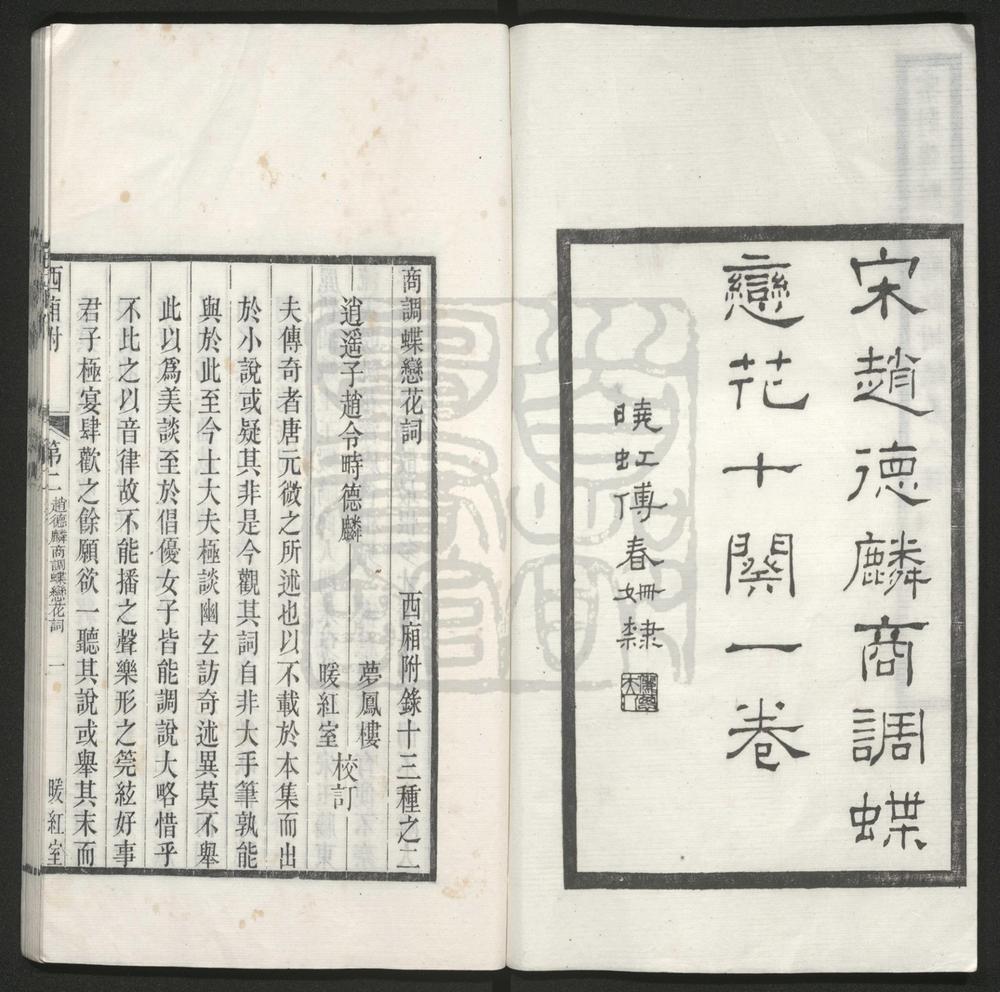 宋趙德麟商調蝶
戀花十闋一卷
曉虹傅春姍隸
商調蝶戀花詞　西廂附錄十三種之二
逍遥子趙令畤德麟
夢鳳樓
暖紅室
校訂
夫傳奇者唐元微之所述也以不載於本集而出
於小說或疑其非是今觀其詞自非大手筆孰能
與於此至今士大夫極談幽玄訪奇述異莫不舉
此以爲美談至於倡優女子皆能調說大略惜乎
不比之以音律故不能播之聲樂形之筦絃好事
君子極宴肆歡之餘願欲一聽其說或舉其末而
西廂附　第二　趙德麟商調蝶戀花詞　一　暖紅室